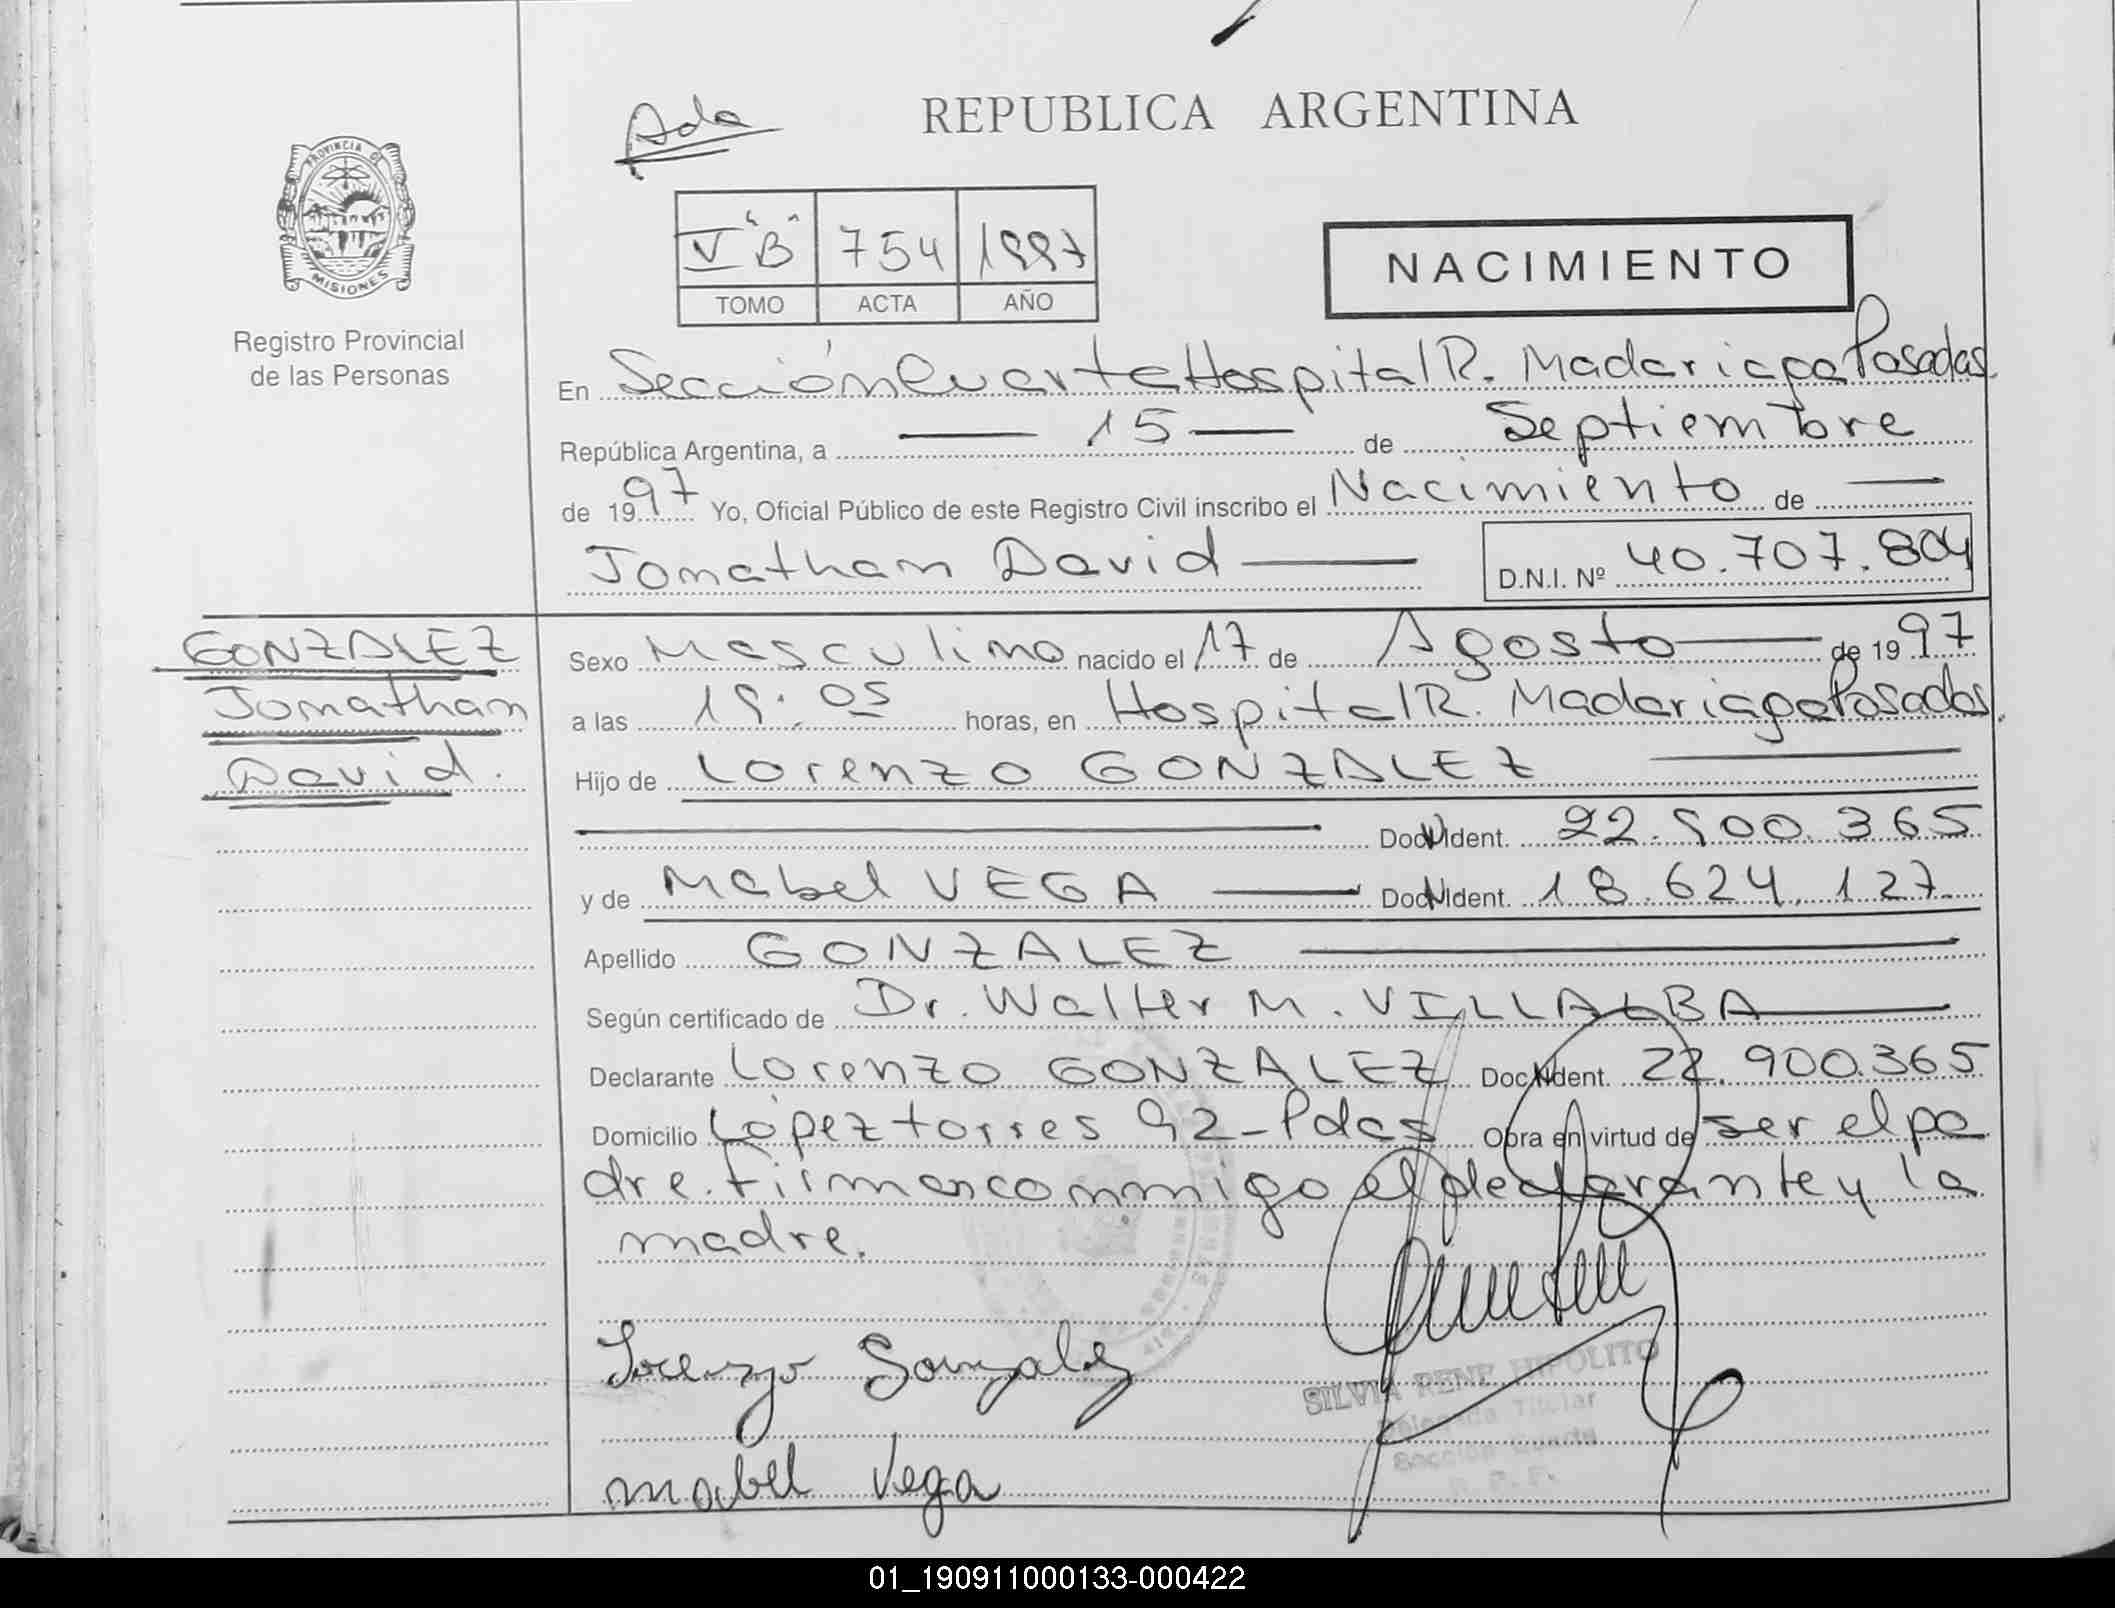 Ada
REPUBLICA ARGENTINA
PROVINCIA DE
MISIONES
Registro Provincial
de las Personas
V "B" 754 1997
TOMO ACTA AÑO
NACIMIENTO
En Sección Cuarta Hospital R. Madariaga Posadas.
República Argentina, a 15 de Septiembre
de 1997 Yo, Oficial Público de este Registro Civil inscribo el Nacimiento de
Jonathan David D.N.I. Nº 40.707.804
GONZALEZ
Jonathan
David.
Sexo Masculino nacido el 17 de Agosto de 1997
a las 19:05 horas, en Hospital R. Madariaga Posadas.
Hijo de Lorenzo GONZALEZ
Doc. N Ident. 22.900.365
y de Mabel VEGA Doc. N Ident. 18.624.127
Apellido GONZALEZ
Según certificado de Dr. Walter M. VILLALBA
Declarante Lorenzo GONZALEZ Doc. N Ident. 22.900.365
Domicilio López torres 92-Pdas Obra en virtud de ser el pa
dre. Firman conmigo el declarante y la
madre.
Lorenzo Gonzalez
SILVIA RENE HIPOLITO
Delegada Titular
Sección Cuarta
R. P. P.
mabel Vega
01_190911000133-000422